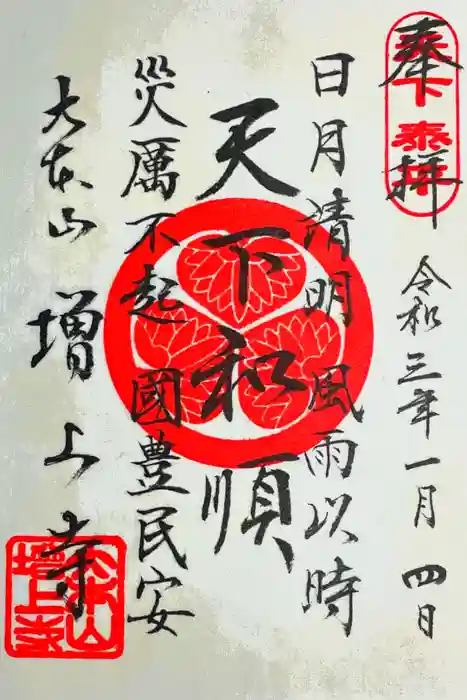 奉拝
天下泰平
令和三年一月四日
日月清明 風雨以時
天下和順
災厲不起 國豊民安
大本山 増上寺
大本山
増上寺